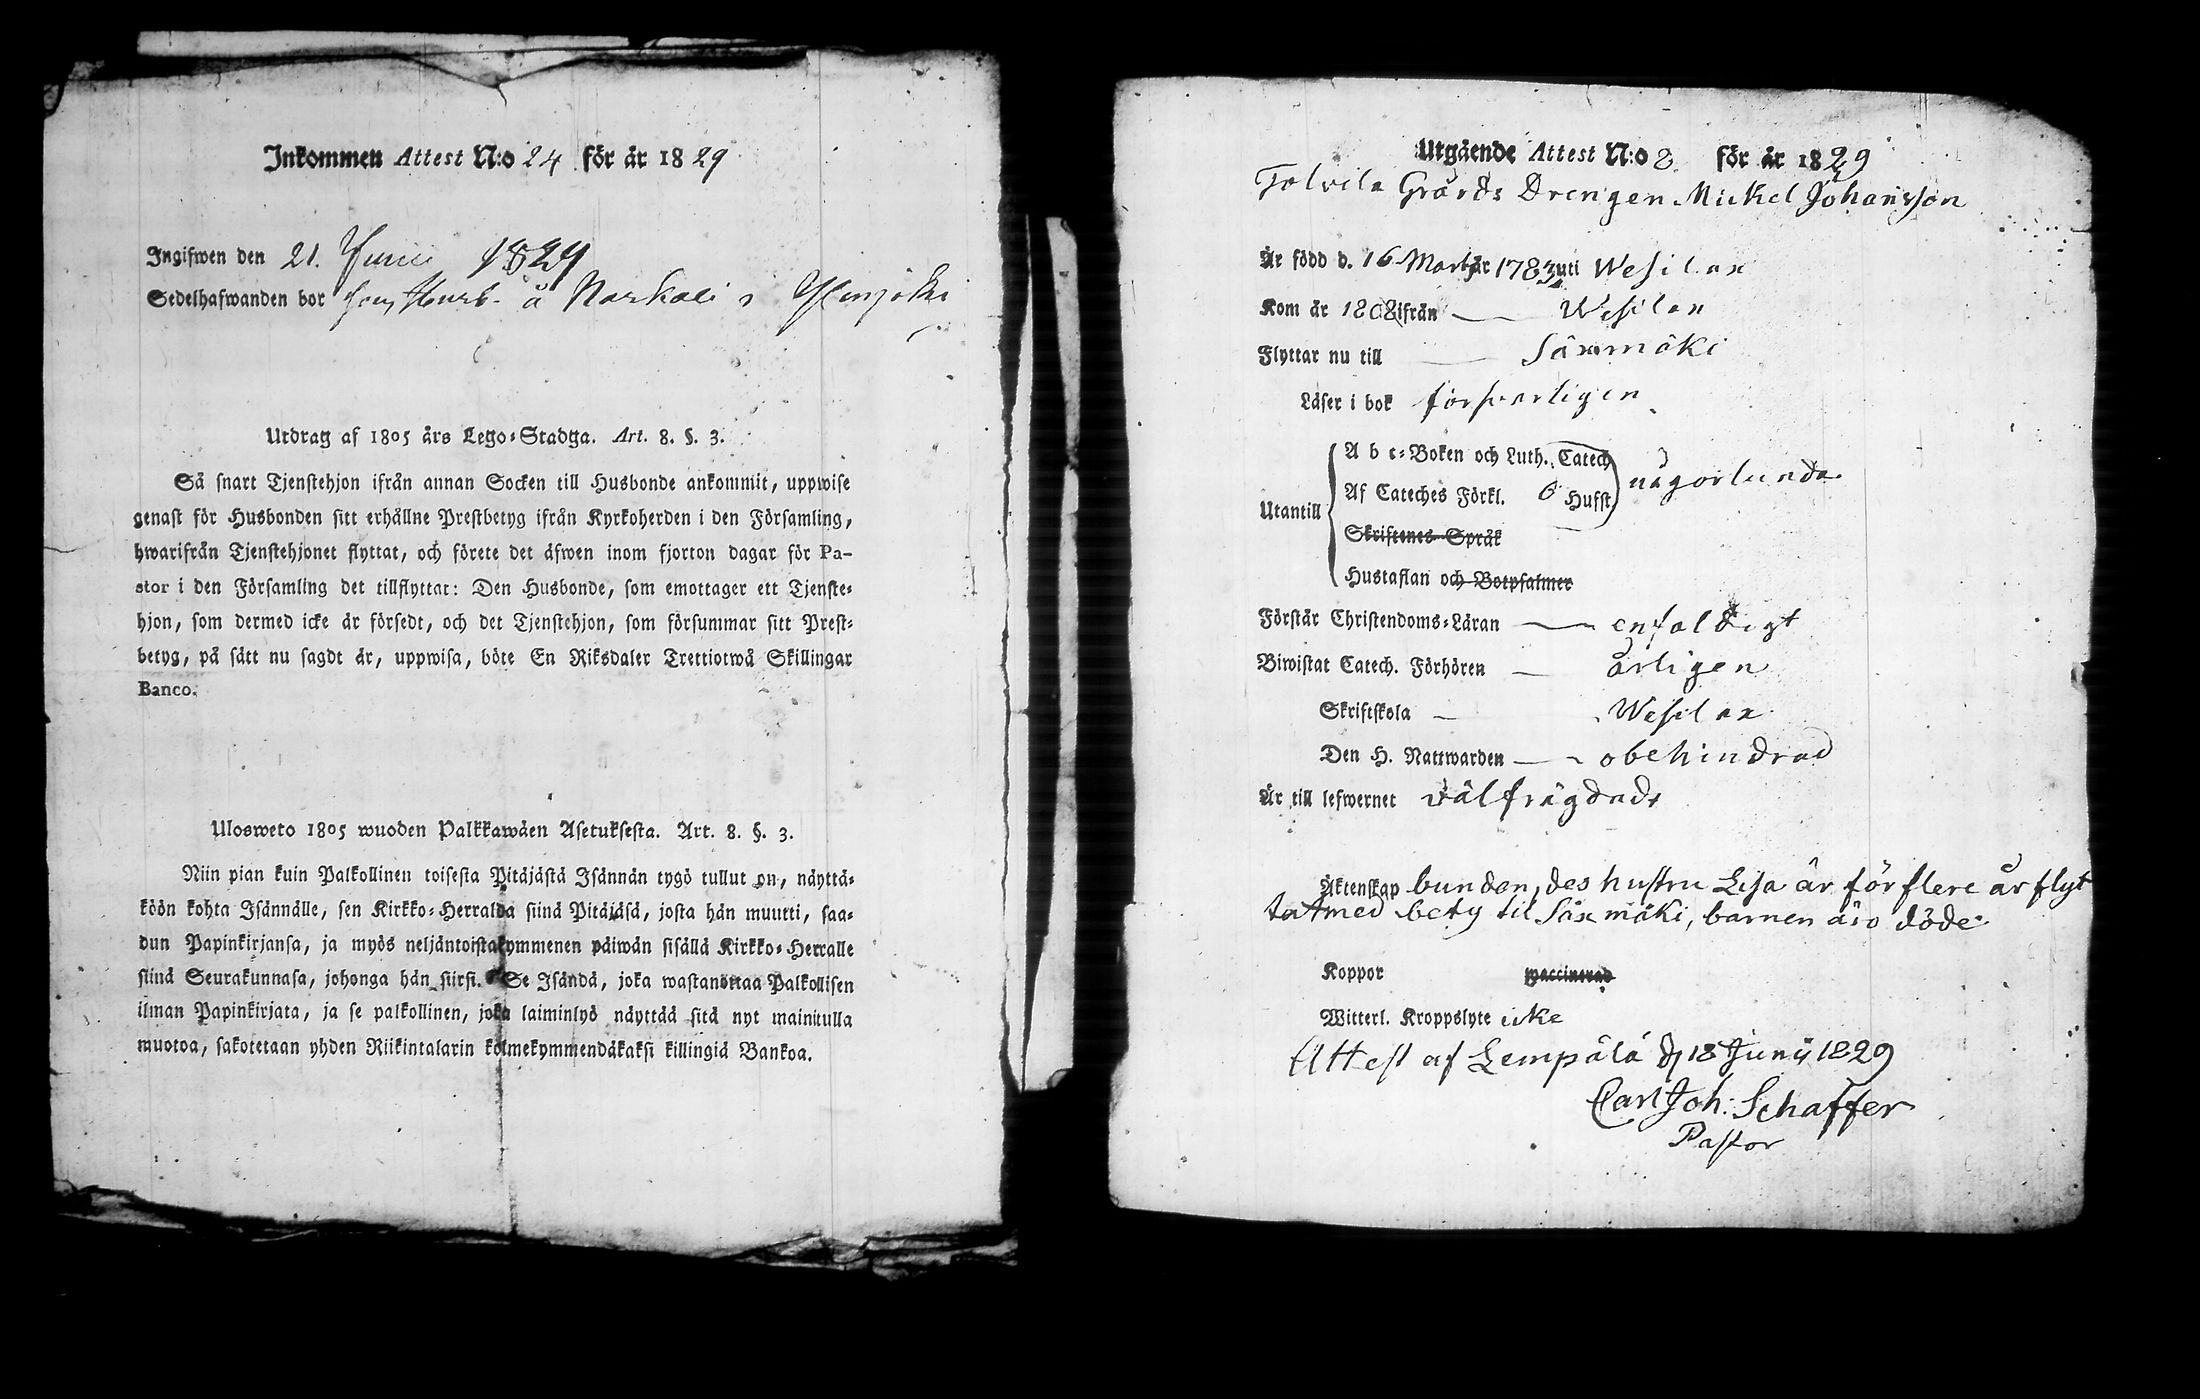 Inkommen Attest N:o 24 för år 1829
Ingifwen den 21. Junii 1829
Sedelhafwanden bor å Narkali
Utdrag af 1805 års Lego-Stadga. Art. 8. §. 3.
Så snart Tjenstehjon ifrån annan Socken till Husbonde ankommit, uppwise
genast för Husbonden sitt erhållne Prestbetyg ifrån Kyrkoherden i den Församling,
hwarifrån Tjenstehjonet flyttat, och förete det äfwen inom fjorton dagar för Pa-
stor i den Församling det tillflyttat: Den Husbonde, som emottager ett Tjenste-
hjon, som dermed icke är försedt, och det Tjenstehjon, som försummar sitt Prest-
betyg, på sätt nu sagdt är, uppwisa, böte En Riksdaler Trettiotwå Skillingar
Banco.
Ulosweto 1805 wuoden Palkkawäen Asetuksesta. Art. 8. §. 3.
Niin pian kuin Palkollinen toisesta Pitäjästä Isännän tygö tullut on, näyttä-
köön kohta Isännälle, sen Kirkko-Herralda siinä Pitäjäsä, josta hän muutti, saa-
dun Papinkirjansa, ja myös neljäntoistakymmenen päiwän sisällä Kirkko-Herralle
siinä Seurakunnasa, johonga hän siirsi. Se Isändä, joka wastanottaa Palkollisen
ilman Papinkirjata, ja se palkollinen, joka laiminlyö näyttää sitä nyt mainitulla
muotoa, sakotetaan yhden Riikintalarin kolmekymmendäkaksi killingiä Bankoa.
Utgående Attest N:o 8 för år 1829
Tolvila Gårds Drengen Mickel Johansson
Är född d. 16 Mars år 1783 uti Wesilax
Kom år 1808 ifrån Wesilax
Flyttar nu till Säxmäki
Läser i bok försvarligen
A b c-Boken och Luth. Catech
Af Cateches Förkl. O Hufst. någorlunda
Utantill
Skriftenes Språk
Hustaflan och Botpsalmer
Förstår Christendoms-Läran enfaldigt
Biwistat Catech. Förhören årligen
Skriftskola Wesilax
Den H. Nattwarden obehindrad
Är till lefwernet välfrägdads
Äktenskap bunden, des hustru Lisa är för flere år flyt
tat med betyg til Säxmäki, barnen äro döde
Koppor vaccinerad
Witterl. Kroppslyte icke
Attest af Lempälä d 18 Junii 1829
Carl Joh: Schaffer
Pastor